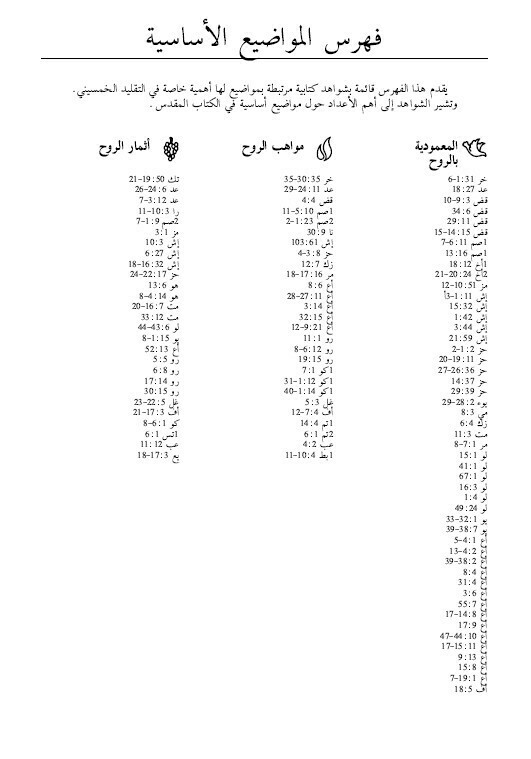 فهرس المواضيع الأساسية
يقدم هذا الفهرس قائمة بشواهد كتابية مرتبطة بمواضيع لها أهمية خاصة في التقليد الخمسيني.
وتشير الشواهد إلى أهم الأعداد حول مواضيع أساسية في الكتاب المقدس.
المعمودية
بالروح
خر 31:1-6
عد 27:18
قض 3:9-10
قض 6:34
قض 11:29
قض 15:14-15
1صم 11:6-7
1صم 16:13
1أخ 12:18
2أخ 24:20-21
مز 51:10-12
إش 11:1-3أ
إش 32:15
إش 42:1
إش 44:3
إش 59:21
حز 2:1-2
حز 11:19-20
حز 36:26-27
حز 37:14
حز 39:29
يوء 2:28-29
مي 3:8
زك 4:6
مت 3:11
مر 1:7-8
لو 1:15
لو 1:41
لو 1:67
لو 3:16
لو 4:1
لو 24:49
يو 1:32-33
يو 7:38-39
أع 1:4-5
أع 2:4-13
أع 2:38-39
أع 4:8
أع 4:31
أع 6:3
أع 7:55
أع 8:14-17
أع 9:17
أع 10:44-47
أع 11:15-17
أع 13:9
أع 15:8
أع 19:1-7
أف 5:18
مواهب الروح
خر 35:30-35
عد 11:24-29
قض 4:4
1صم 10:5-11
2صم 23:1-2
نا 9:30
إش 61:103
حز 3:8-4
زك 7:12
مر 16:17-18
أع 6:8
أع 11:27-28
أع 14:3
أع 15:32
أع 21:9-12
رو 1:11
رو 12:6-8
رو 15:19
1كو 1:7
1كو 12:1-31
1كو 14:1-40
غل 3:5
أف 4:7-12
1تم 4:14
2تم 1:6
عب 2:4
1بط 4:10-11
أثمار الروح
تك 50:19-21
عد 6:24-26
عد 12:3-7
را 3:10-11
2صم 9:1-7
مز 1:3
إش 3:10
إش 27:6
إش 32:16-18
حز 17:22-24
هو 6:13
هو 14:4-8
مت 7:16-20
مت 12:33
لو 6:43-44
يو 15:1-8
أع 13:52
رو 5:5
رو 8:6
رو 14:17
رو 15:30
غل 5:22-23
أف 3:17-21
كو 1:6-8
1تس 1:6
عب 12:11
يع 3:17-18